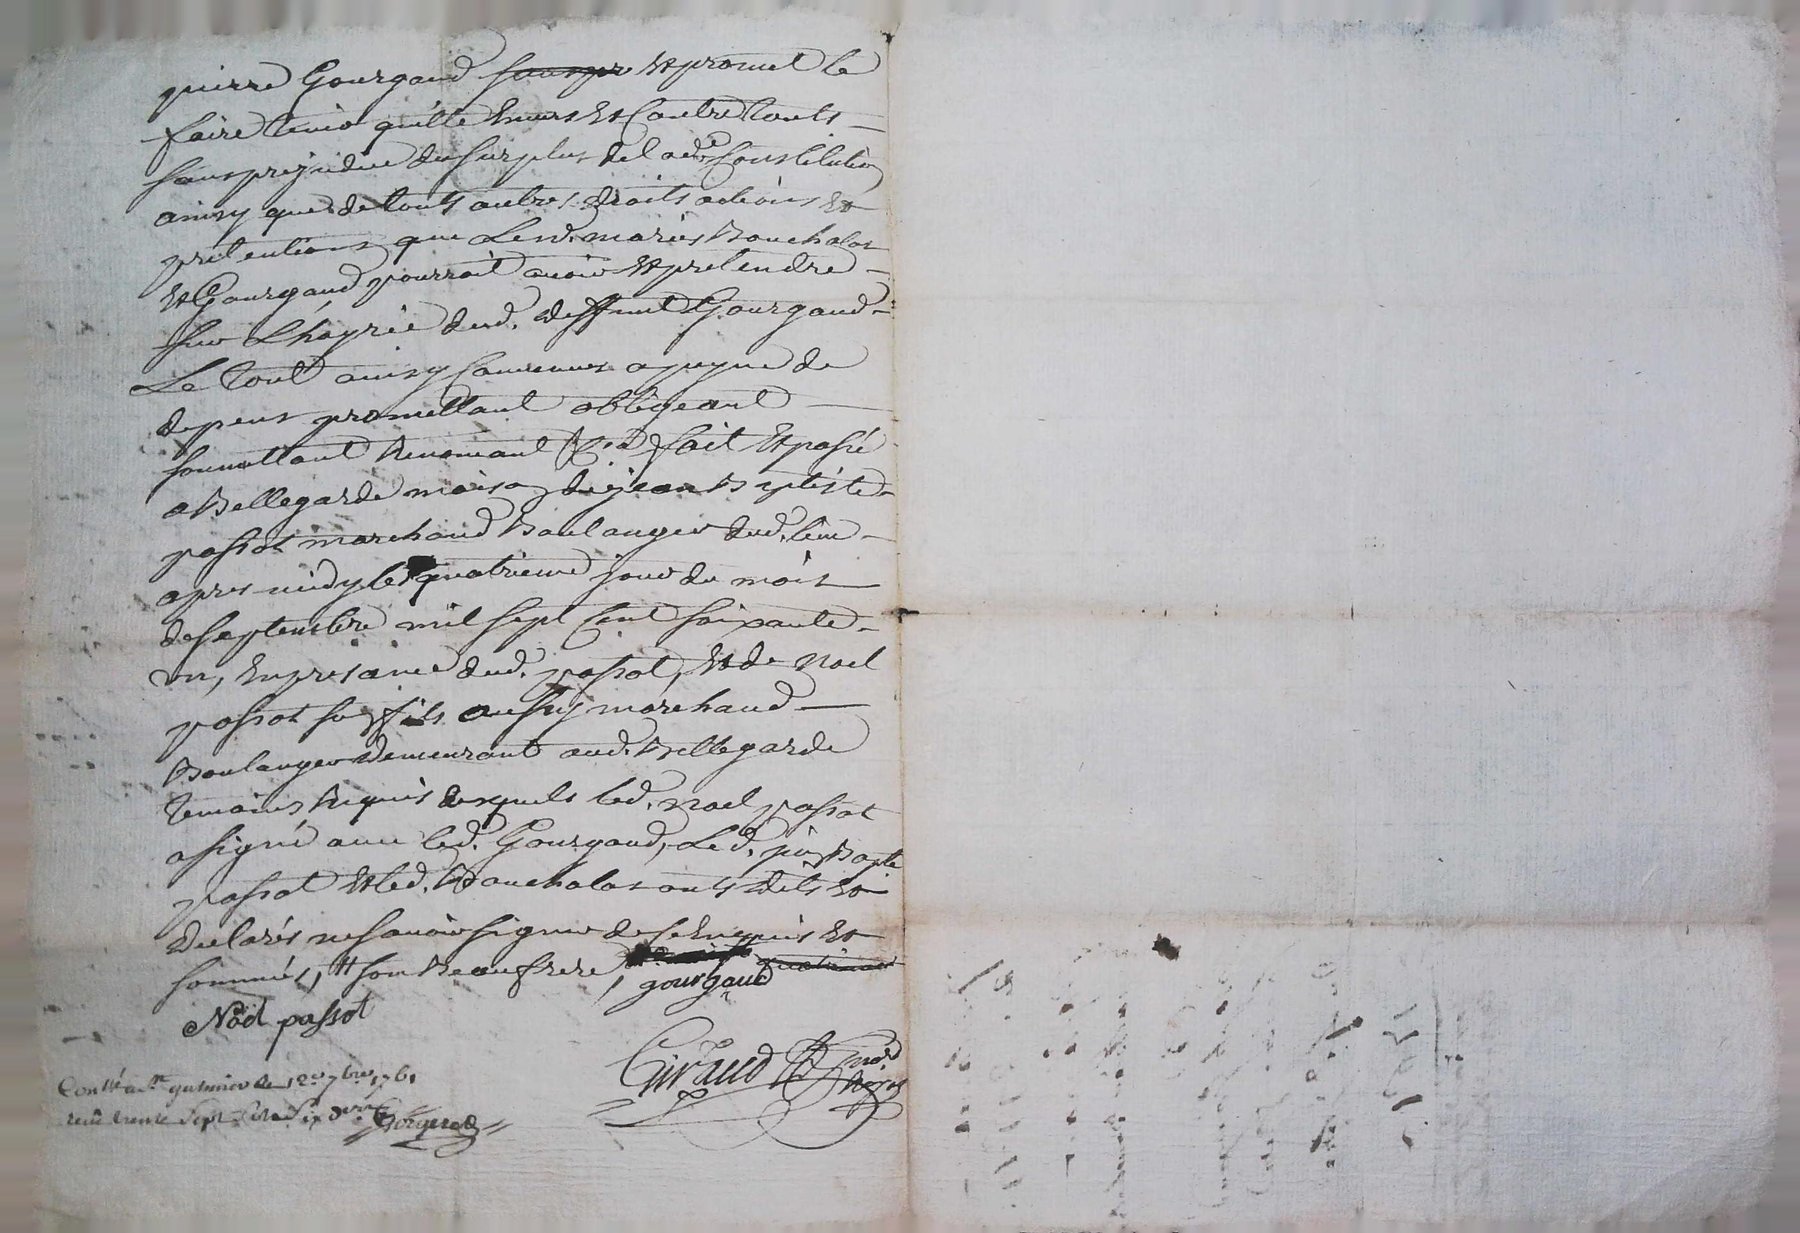 pierre Gourgaud et promet le
faire tenir quitte envers et Contre touts
sans prejudice du surplus de lad.e Constitution
ainsy que de touts autres droits actions et
pretentions que Lesd. mariés Bouchalas
et Gourgaud pourroit avoir et pretendre
sur L'hoyrie dud. deffunt Gourgaud
Le tout ainsy Convenus a peyne de
depens promettant obligeant
soumettant Renonçant &ca fait et passé
a Bellegarde maison de jean Baptiste
passot marchand Boulanger dud. lieu
apres midy le quatrieme jour du mois
de septembre mil sept Cent soixante
un, en presance dud. passot, et de Noel
passot son fils aussy marchand
Boulanger demeurant aud. Bellegarde
temoins Requis desquels led. Noel passot
a signé avec led. Gourgaud, Led. jean Bapte
passot et led. Bouchalas onts dits et
declarés ne savoir signer de ce enquis et
sommés, # son Beaufrere,
gourgaud
Noël passot
Giraud
Nore
Royal
Conllé a du 12e 7bre 1761
reçû trente sept six